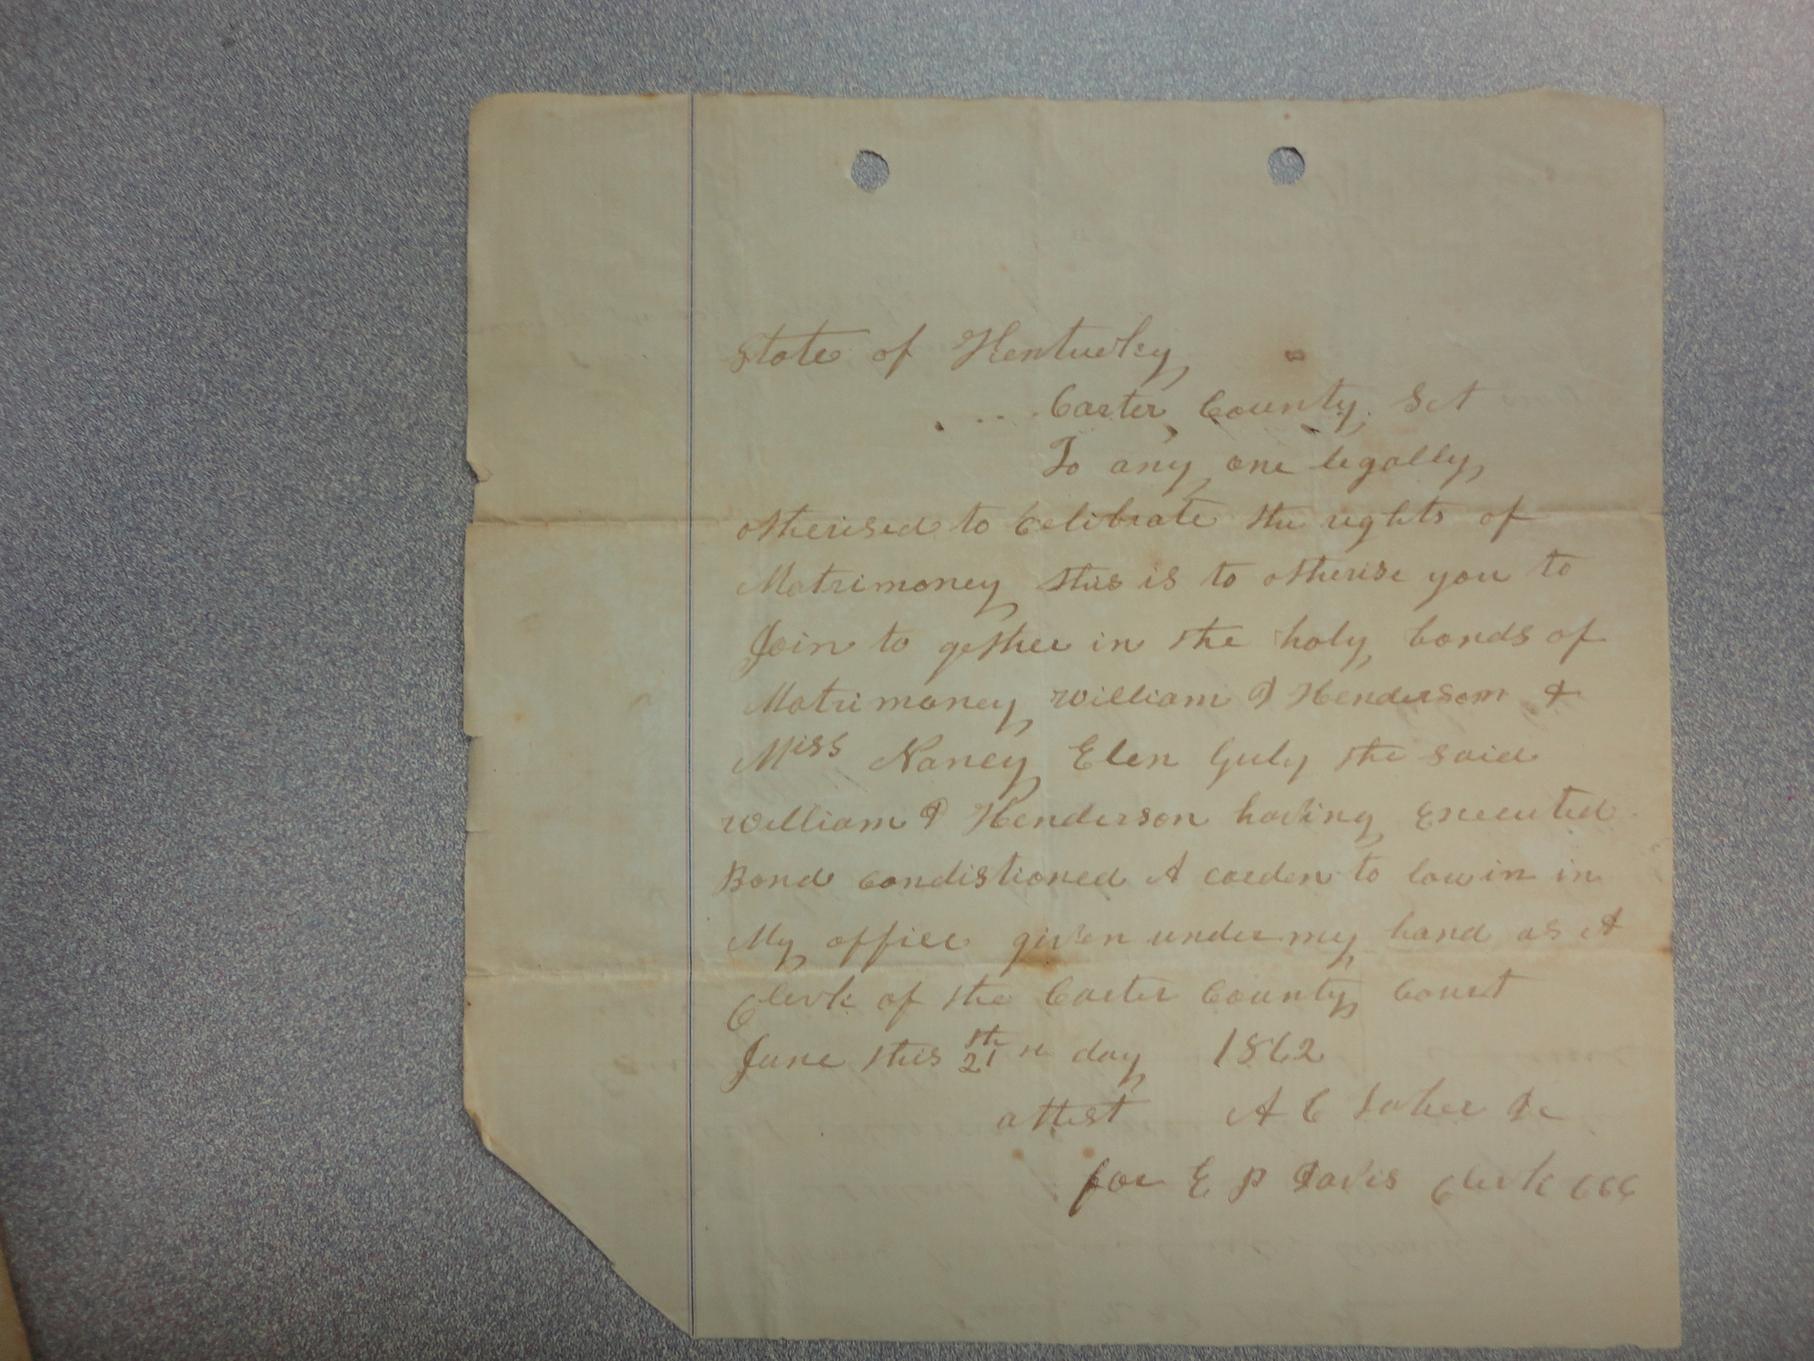 State of Kentucky
Carter County Sct
To any one legally
otherised to Celibrate the rights of
Matrimoney this is to otherise you to
Join to gether in the holy bonds of
Matrimoney William D Henderson &
Miss Nancy Elen the said
William D Henderson having executed
Bond condistioned A corden to law in in
My office given under my hand as A
Clerk of the Carter County Court
June this 21th day 1862
attest A C Dc
for E P Davis Clerk CCC